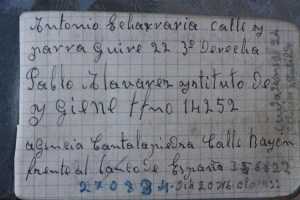 Antonio Echarraria calle y
parra Guire 22 3º Derecha
Pablo Alavarez yntituto de
y giene tfno 14252
agencia Cantalapiedra Calle Bayen
frente al banco de España
270834 Dia 20